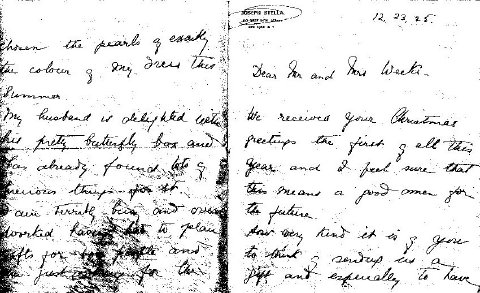 JOSEPH STELLA
NEW YORK N.Y.
12. 23. 25.
Dear Mr and Mrs Weeks -
We received your Christmas
greetings the first of all this
year and I feel sure that
this means a good omen for
the future.
How very kind it is of you
to think of sending us a
gift and especially to have
chosen the pearls of exactly
the colour of my dress this
Summer
My husband is delighted with
his pretty butterfly box and
has already found lots of
things for it
terribly busy and over
worked having had to plan
gifts for people and
for the